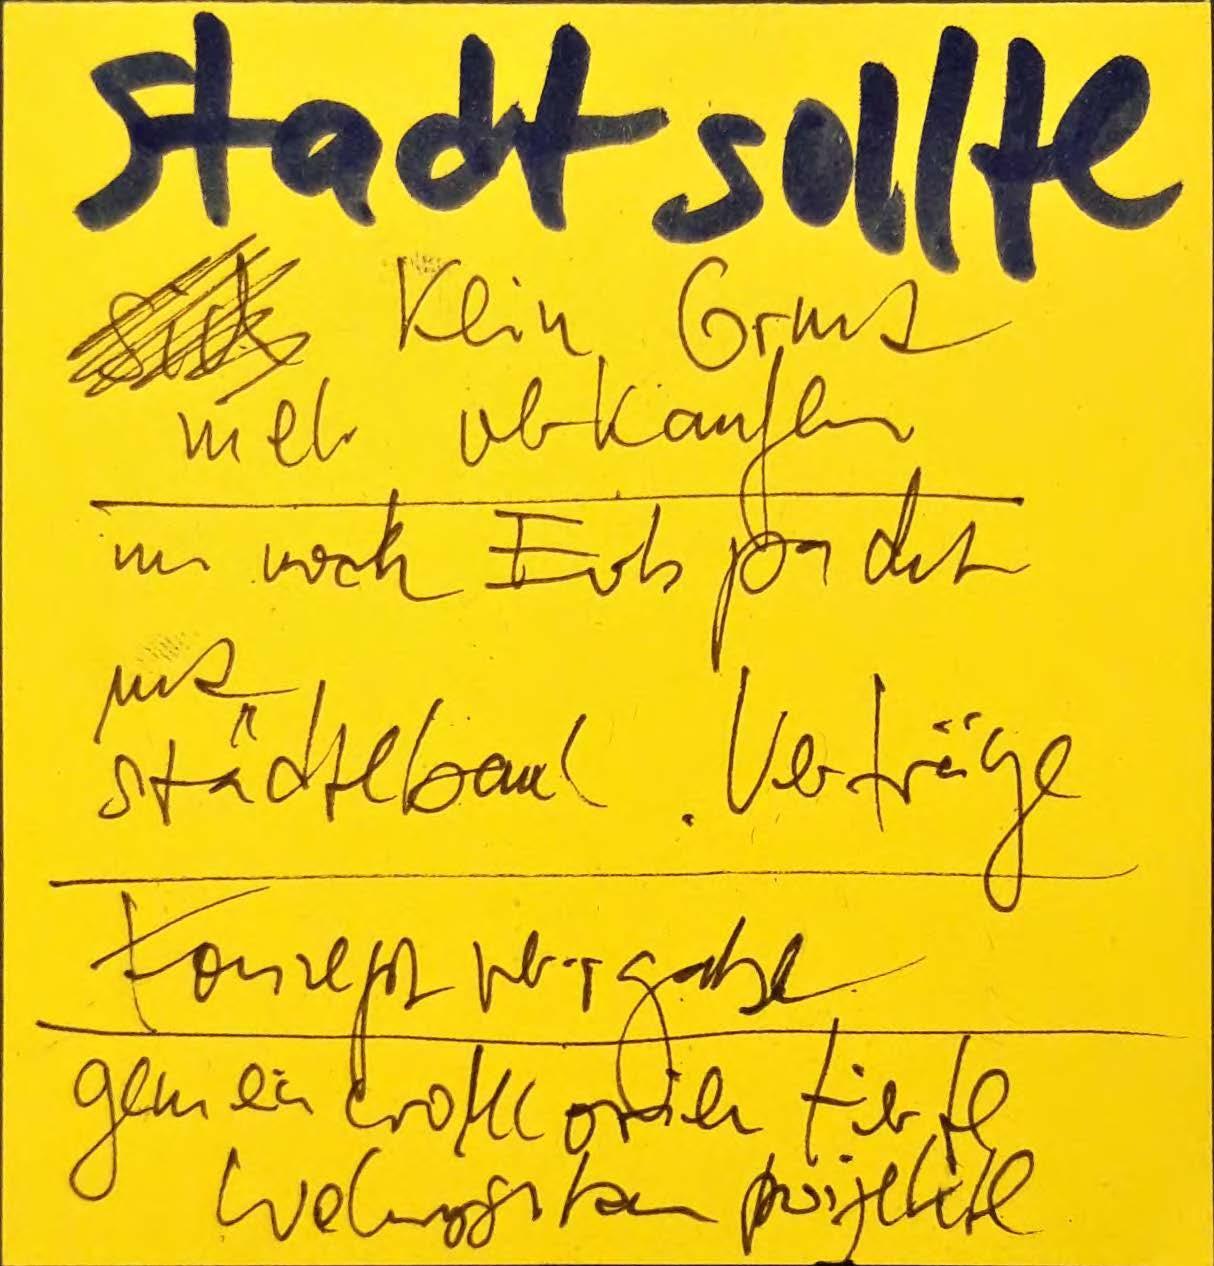 Stadt sollte
Kein Grund
mehr verkaufen
nur noch Erbpacht
mit
städtebaul. Verträge
Konzeptvergabe
gemeinwohlorientierte
Wohnungsbauprojekte